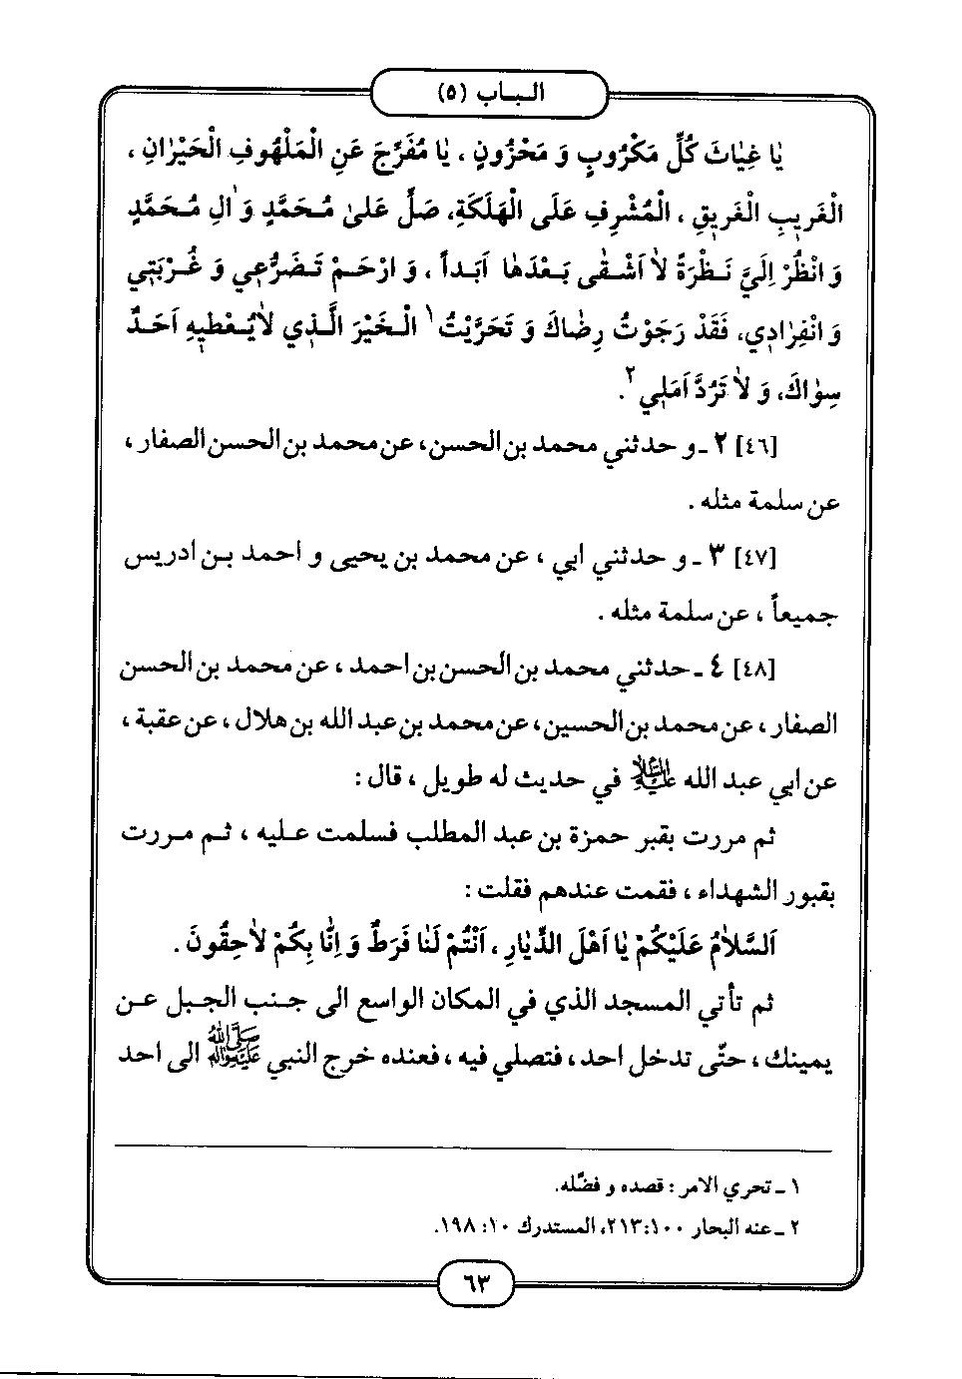 الـبـاب (٥)
يٰا غِيٰاثَ كُلِّ مَكْرُوبٍ وَ مَحْزُونٍ ، يٰا مُفَرِّجَ عَنِ الْمَلْهُوفِ الْحَيْرٰانِ ،
الْغَرِيبِ الْغَرِيقِ ، الْمُشْرِفِ عَلَى الْهَلَكَةِ، صَلِّ عَلىٰ مُحَمَّدٍ وَ اٰلِ مُحَمَّدٍ
وَ انْظُرْ اِلَيَّ نَظْرَةً لاٰ اَشْقٰى بَعْدَهٰا اَبَداً ، وَ ارْحَمْ تَضَرُّعِي وَ غُرْبَتِي
وَ انْفِرٰادِي، فَقَدْ رَجَوْتُ رِضٰاكَ وَ تَحَرَّيْتُ ١ الْخَيْرَ الَّذِي لاٰيُعْطِيهِ اَحَدٌ
سِوٰاكَ، وَ لاٰ تَرُدَّ اَمَلِي ٢.
[٤٦] ٢ ـ و حدثني محمد بن الحسن، عن محمد بن الحسن الصفار ،
عن سلمة مثله .
[٤٧] ٣ ـ و حدثني ابي ، عن محمد بن يحيى و احمد بـن ادريس
جميعاً ، عن سلمة مثله .
[٤٨] ٤ ـ حدثني محمد بن الحسن بن احمد ، عن محمد بن الحسن
الصفار ، عن محمد بن الحسين، عن محمد بن عبد الله بن هلال ، عن عقبة ،
عن ابي عبد الله عليه السلام في حديث له طويل ، قال :
ثم مررت بقبر حمزة بن عبد المطلب فسلمت عـليه ، ثـم مـررت
بقبور الشهداء ، فقمت عندهم فقلت :
اَلسَّلاٰمُ عَلَيْكُمْ يٰا اَهْلَ الدِّيٰارِ ، اَنْتُمْ لَنٰا فَرَطٌ وَ اِنّٰا بِكُمْ لاٰحِقُونَ .
ثم تأتي المسجد الذي في المكان الواسع الى جـنب الجبل عـن
يمينك ، حتّى تدخل احد ، فتصلي فيه ، فعنده خرج النبي صلى الله عليه وآله الى احد
١ ـ تحري الامر : قصده و فضّله.
٢ ـ عنه البحار ١٠٠:٢١٣، المستدرك ١٠: ١٩٨.
٦٣